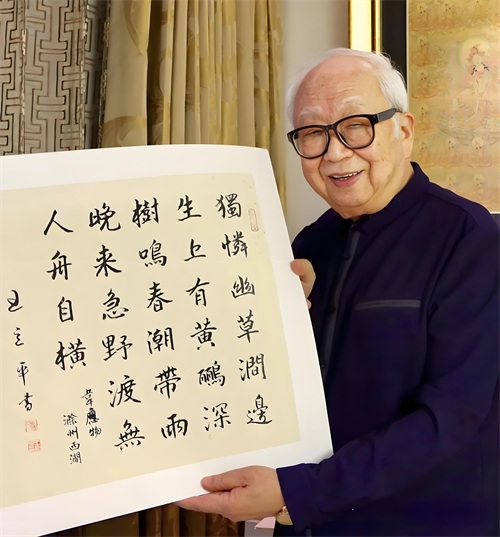 獨憐幽草澗邊
生上有黃鸝深
樹鳴春潮帶雨
晚来急野渡無
人舟自橫
韋應物
滁州西澗
王立平书